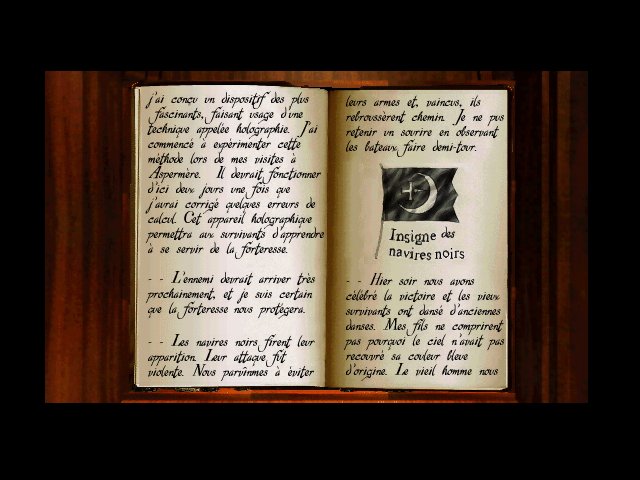 j'ai conçu un dispositif des plus
fascinants, faisant usage d'une
technique appelée holographie. J'ai
commencé à expérimenter cette
méthode lors de mes visites à
Aspermère. Il devrait fonctionner
d'ici deux jours une fois que
j'aurai corrigé quelques erreurs de
calcul. Cet appareil holographique
permettra aux survivants d'apprendre
à se servir de la forteresse.
- - L'ennemi devrait arriver très
prochainement, et je suis certain
que la forteresse nous protégera.
- - Les navires noirs firent leur
apparition. Leur attaque fût
violente. Nous parvînmes à éviter
leurs armes et, vaincus, ils
rebroussèrent chemin. Je ne pus
retenir un sourire en observant
les bateaux faire demi-tour.
Insigne des
navires noirs
- - Hier soir nous avons
célébré la victoire et les vieux
survivants ont dansé d'anciennes
danses. Mes fils ne comprirent
pas pourquoi le ciel n'avait pas
recouvré sa couleur bleue
d'origine. Le vieil homme nous